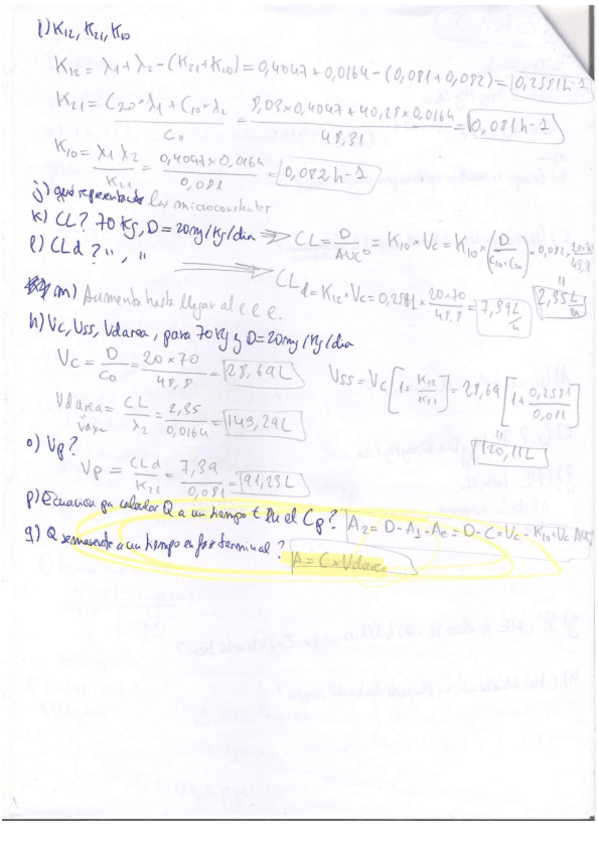 i) K12, K21, K10
K12 = λ1 + λ2 - (K21+K10) = 0,4047 + 0,0164 - (0,081 + 0,082) = 0,2581 h-1
K21 = C20 × λ1 + C10 × λ2 / C0 = 8,03 × 0,4047 + 40,28 × 0,0164 / 48,31 = 0,081 h-1
K10 = λ1 λ2 / K21 = 0,4047 × 0,0164 / 0,081 = 0,082 h-1
j) qué representan las microconstantes
k) CL? 70 Kg, D = 20mg/Kg/dia ⇒ CL = D / AUC0 = K10 × Vc = K10 × (D / C10+C20) = 0,082 × 20×70 / 48,8 = 2,35 L/h
l) CLd? ", " ⇒ CLd = K12 × Vc = 0,2581 × 20×70 / 48,8 = 7,39 L/h
m) Aumenta hasta llegar al e.e.e.
n) Vc, Vss, Vdarea, para 70 Kg y D=20mg/Kg/dia
Vc = D / C0 = 20 × 70 / 48,8 = 28,69 L
Vss = Vc [1 + K12 / K21] = 28,69 [1 + 0,2581 / 0,081] = 120,11 L
Vdarea = CL / λ2 = 2,35 / 0,0164 = 143,29 L
o) Vp?
Vp = CLd / K21 = 7,39 / 0,081 = 91,23 L
p) Ecuacion pa calcular Q a un tiempo t en el Cp? A2 = D - A1 - Ae = D - C × Vc - K10 × Vc AUC
q) Q remanente a un tiempo en fase terminal? A = C × Vdarea